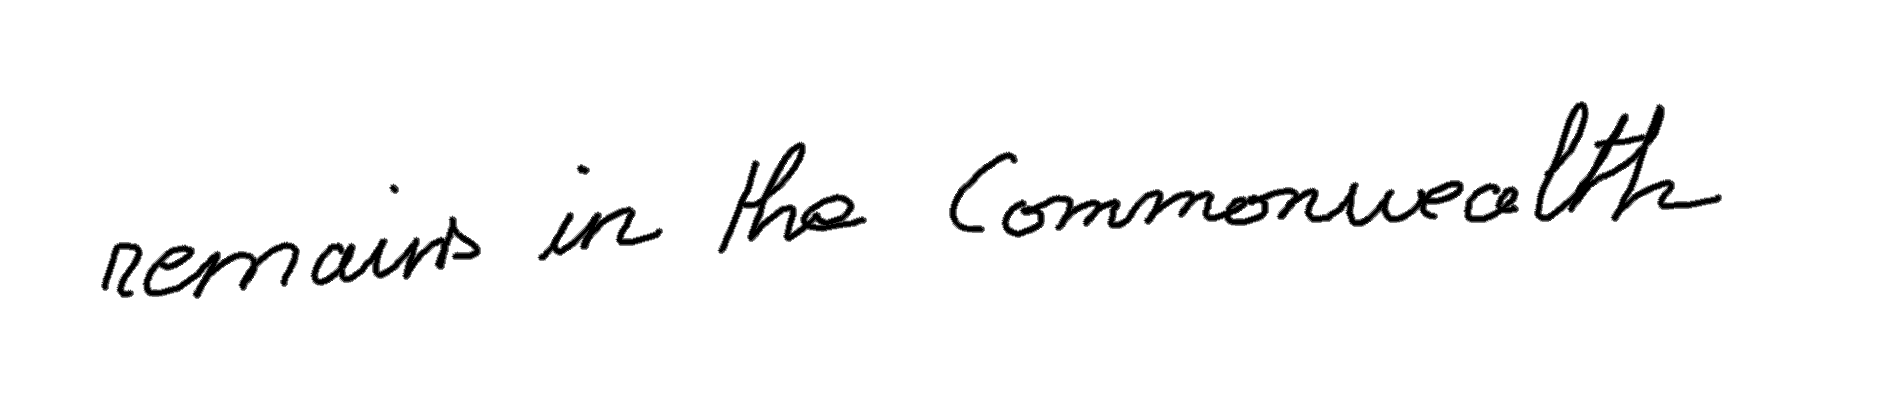 remains in the Commonwealth